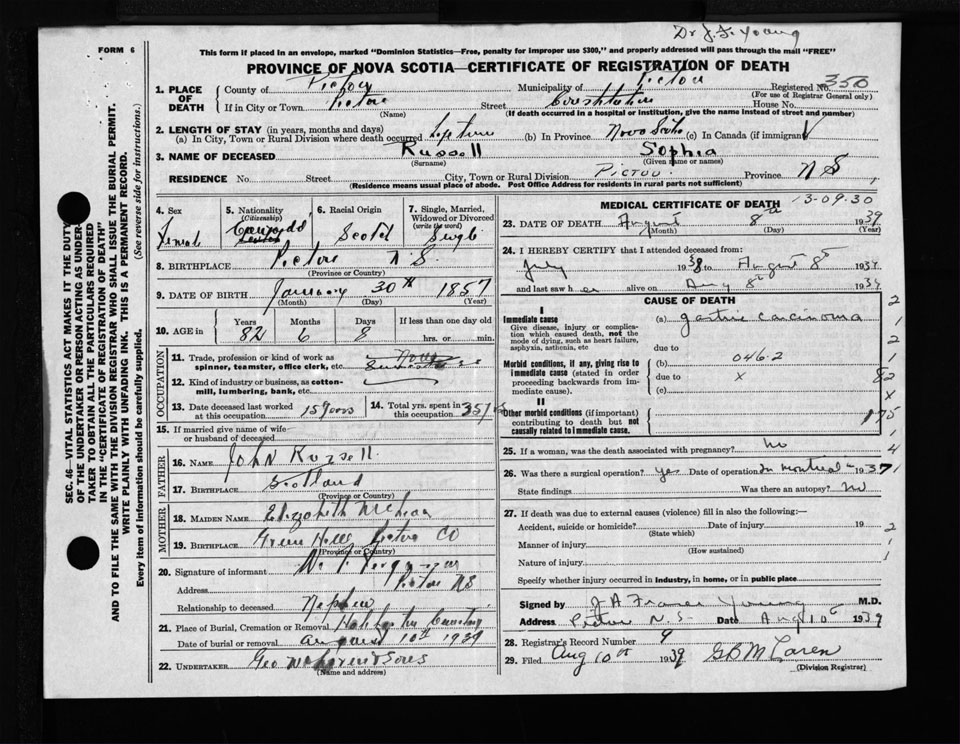 Dr J. F. Young
FORM 6
This form if placed in an envelope, marked "Dominion Statistics—Free, penalty for improper use $300," and properly addressed will pass through the mail "FREE"
PROVINCE OF NOVA SCOTIA—CERTIFICATE OF REGISTRATION OF DEATH
1. PLACE OF DEATH County of Pictou Municipality of Pictou Registered No. 350
(For use of Registrar General only)
If in City or Town Pictou Street House No.
(Name) (If death occurred in a hospital or institution, give the name instead of street and number)
2. LENGTH OF STAY (in years, months and days)
(a) In City, Town or Rural Division where death occurred Lifetime (b) In Province Nova Scotia (c) In Canada (if immigrant)
3. NAME OF DECEASED Russell Sophia
(Surname) (Given name or names)
RESIDENCE No. Street City, Town or Rural Division Pictou Province N S
(Residence means usual place of abode. Post Office Address for residents in rural parts not sufficient)
4. Sex Female
5. Nationality (Citizenship) Canada
6. Racial Origin Scotch
7. Single, Married, Widowed or Divorced (write the word) Single
8. BIRTHPLACE Pictou N S.
(Province or Country)
9. DATE OF BIRTH January 30th 1857
(Month) (Day) (Year)
10. AGE in Years Months Days If less than one day old
82 6 8 hrs. or min.
OCCUPATION
11. Trade, profession or kind of work as spinner, teamster, office clerk, etc.
12. Kind of industry or business, as cotton-mill, lumbering, bank, etc.
13. Date deceased last worked at this occupation 15 years 14. Total yrs. spent in this occupation 35 yrs
15. If married give name of wife or husband of deceased
FATHER
16. NAME John Russell
17. BIRTHPLACE Scotland
(Province or Country)
MOTHER
18. MAIDEN NAME Elizabeth McLean
19. BIRTHPLACE Green Hill Pictou CO
(Province or Country)
20. Signature of informant
Address Pictou N S
Relationship to deceased Nephew
21. Place of Burial, Cremation or Removal Cemetery
Date of burial or removal August 10th 1939
22. UNDERTAKER Geo McLaren & Sons
(Name and address)
MEDICAL CERTIFICATE OF DEATH 13-09-30
23. DATE OF DEATH August 8th 1939
(Month) (Day) (Year)
24. I HEREBY CERTIFY that I attended deceased from:
July 1938 to August 8th 1939
and last saw her alive on Aug 8th 1939
CAUSE OF DEATH
I
Immediate cause
Give disease, injury or complication which caused death, not the mode of dying, such as heart failure, asphyxia, asthenia, etc
(a) gastric carcinoma
due to
Morbid conditions, if any, giving rise to immediate cause (stated in order proceeding backwards from immediate cause).
(b) 046.2
due to x
(c)
II
Other morbid conditions (if important) contributing to death but not causally related to immediate cause.
2
1
2
1
82
x
175
1
4
1
2
1
1
25. If a woman, was the death associated with pregnancy? No
26. Was there a surgical operation? yes Date of operation In Montreal 1937
State findings Was there an autopsy? No
27. If death was due to external causes (violence) fill in also the following:—
Accident, suicide or homicide? Date of injury 19
(State which)
Manner of injury
(How sustained)
Nature of injury
Specify whether injury occurred in industry, in home, or in public place
Signed by J A Fraser Young M.D.
Address Pictou N. S. Date Aug 10th 1939
28. Registrar's Record Number 9
29. Filed Aug 10th 1939 G B McLaren
(Division Registrar)
SEC. 46—VITAL STATISTICS ACT MAKES IT THE DUTY
OF THE UNDERTAKER OR PERSON ACTING AS UNDER-
TAKER TO OBTAIN ALL THE PARTICULARS REQUIRED
IN THE "CERTIFICATE OF REGISTRATION OF DEATH"
AND TO FILE THE SAME WITH THE DIVISION REGISTRAR WHO SHALL ISSUE THE BURIAL PERMIT.
WRITE PLAINLY WITH UNFADING INK. THIS IS A PERMANENT RECORD.
Every item of information should be carefully supplied. (See reverse side for instructions.)